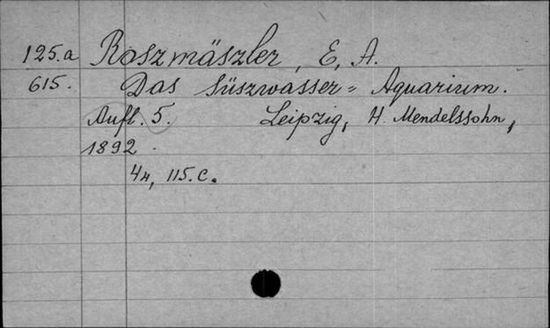 125.a Roszmäszler, E. A.
615. Das Süszwasser= Aquarium.
Aufl. 5. Leipzig, H. Mendelssohn,
1892.
4н, 115.c.